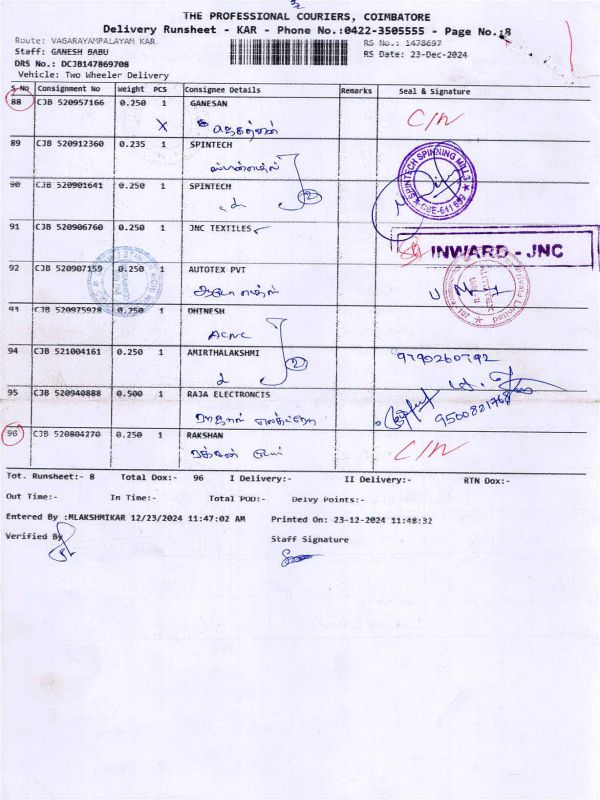 THE PROFESSIONAL COURIERS, COIMBATORE
Delivery Runsheet - KAR - Phone No.:0422-3505555 - Page No.:8
Route: VAGARAYAMPALAYAM KAR
RS No.: 1478697
Staff: GANESH BABU
RS Date: 23-Dec-2024
DRS No.: DCJB147869708
Vehicle: Two Wheeler Delivery
S No Consignment No Weight PCS Consignee Details Remarks Seal & Signature
88 CJB 520957166 0.250 1 GANESAN C/N
X
89 CJB 520912360 0.235 1 SPINTECH
SPINTECH SPINNING MILLS
90 CJB 520901641 0.250 1 SPINTECH
2
91 CJB 520906760 0.250 1 JNC TEXTILES
INWARD - JNC
92 CJB 520907159 0.250 1 AUTOTEX PVT
93 CJB 520975928 0.250 1 DHINESH
ACNC
94 CJB 521004161 0.250 1 AMIRTHALAKSHMI 9790260792
2
95 CJB 520940888 0.500 1 RAJA ELECTRONCIS
9500821768
96 CJB 520804270 0.250 1 RAKSHAN C/N
Tot. Runsheet:- 8 Total Dox:- 96 I Delivery:- II Delivery:- RTN Dox:-
Out Time:- In Time:- Total POD:- Delvy Points:-
Entered By :MLAKSHMIKAR 12/23/2024 11:47:02 AM Printed On: 23-12-2024 11:48:32
Verified By Staff Signature